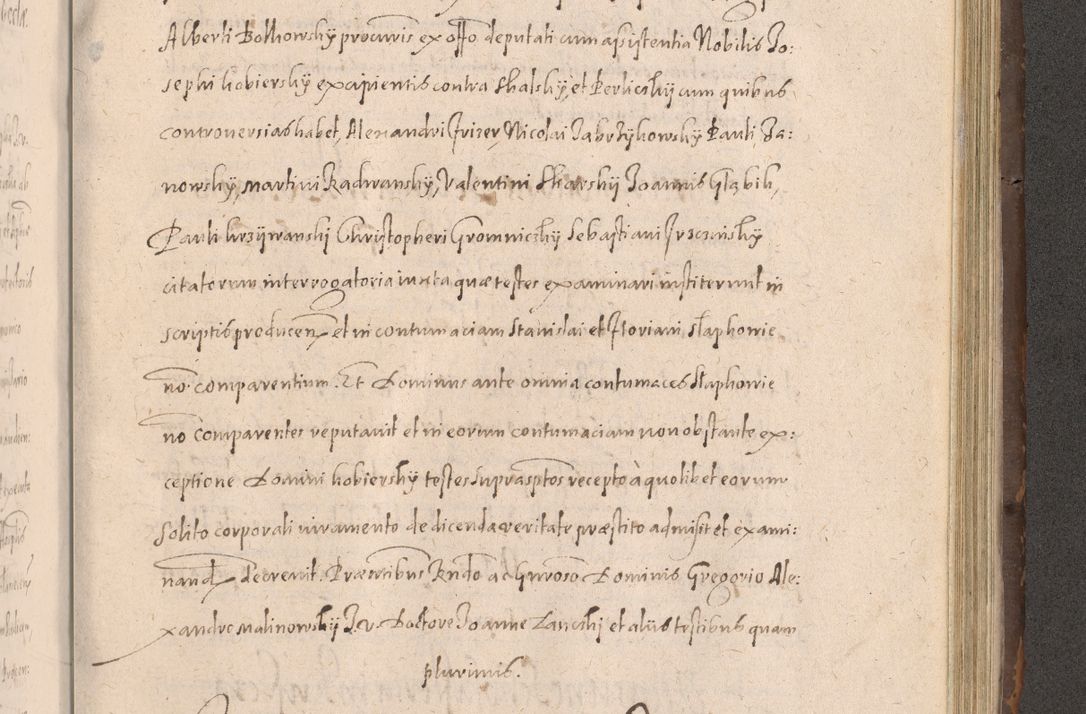 Alberti Bolhowsky procuris ex offo deputati cum assistentia Nobilis Jo:
sephi kobiersky excipientis contra Skalsky, et Perlicihy cum quibus
controversias habet, Alexandri Frizer, Nicolai Jabrzykowsky Pauli, Ja:
nowsky, Martini Radwansky, Valentini Skarsky Joannis Gląbik,
Pauli krzywansky Christopheri Gromnicsky Sebastiani
citatorum interrogatoria iuxta quæ testes examinari institerunt in
scriptis producen. et in contumaciam Stanislai et Floriani Slaphowie
no. comparentium. Et Dominus ante omnia contumaces Slaphowie
no comparentes reputavit et in eorum contumaciam non obstante ex:
ceptione Domini kobiersky testes suprasptos recepto à quolibet eorum
Solito corporali iuramento de dicenda veritate præstito admisit et exami:
nand. decrevit. Præsentibus Rndo ac Gnroso Dominis Gregorio Ale:
xandro Malinowsky J. v. Doctore Joanne Lancihj et aliis testibus quam
plurimis.